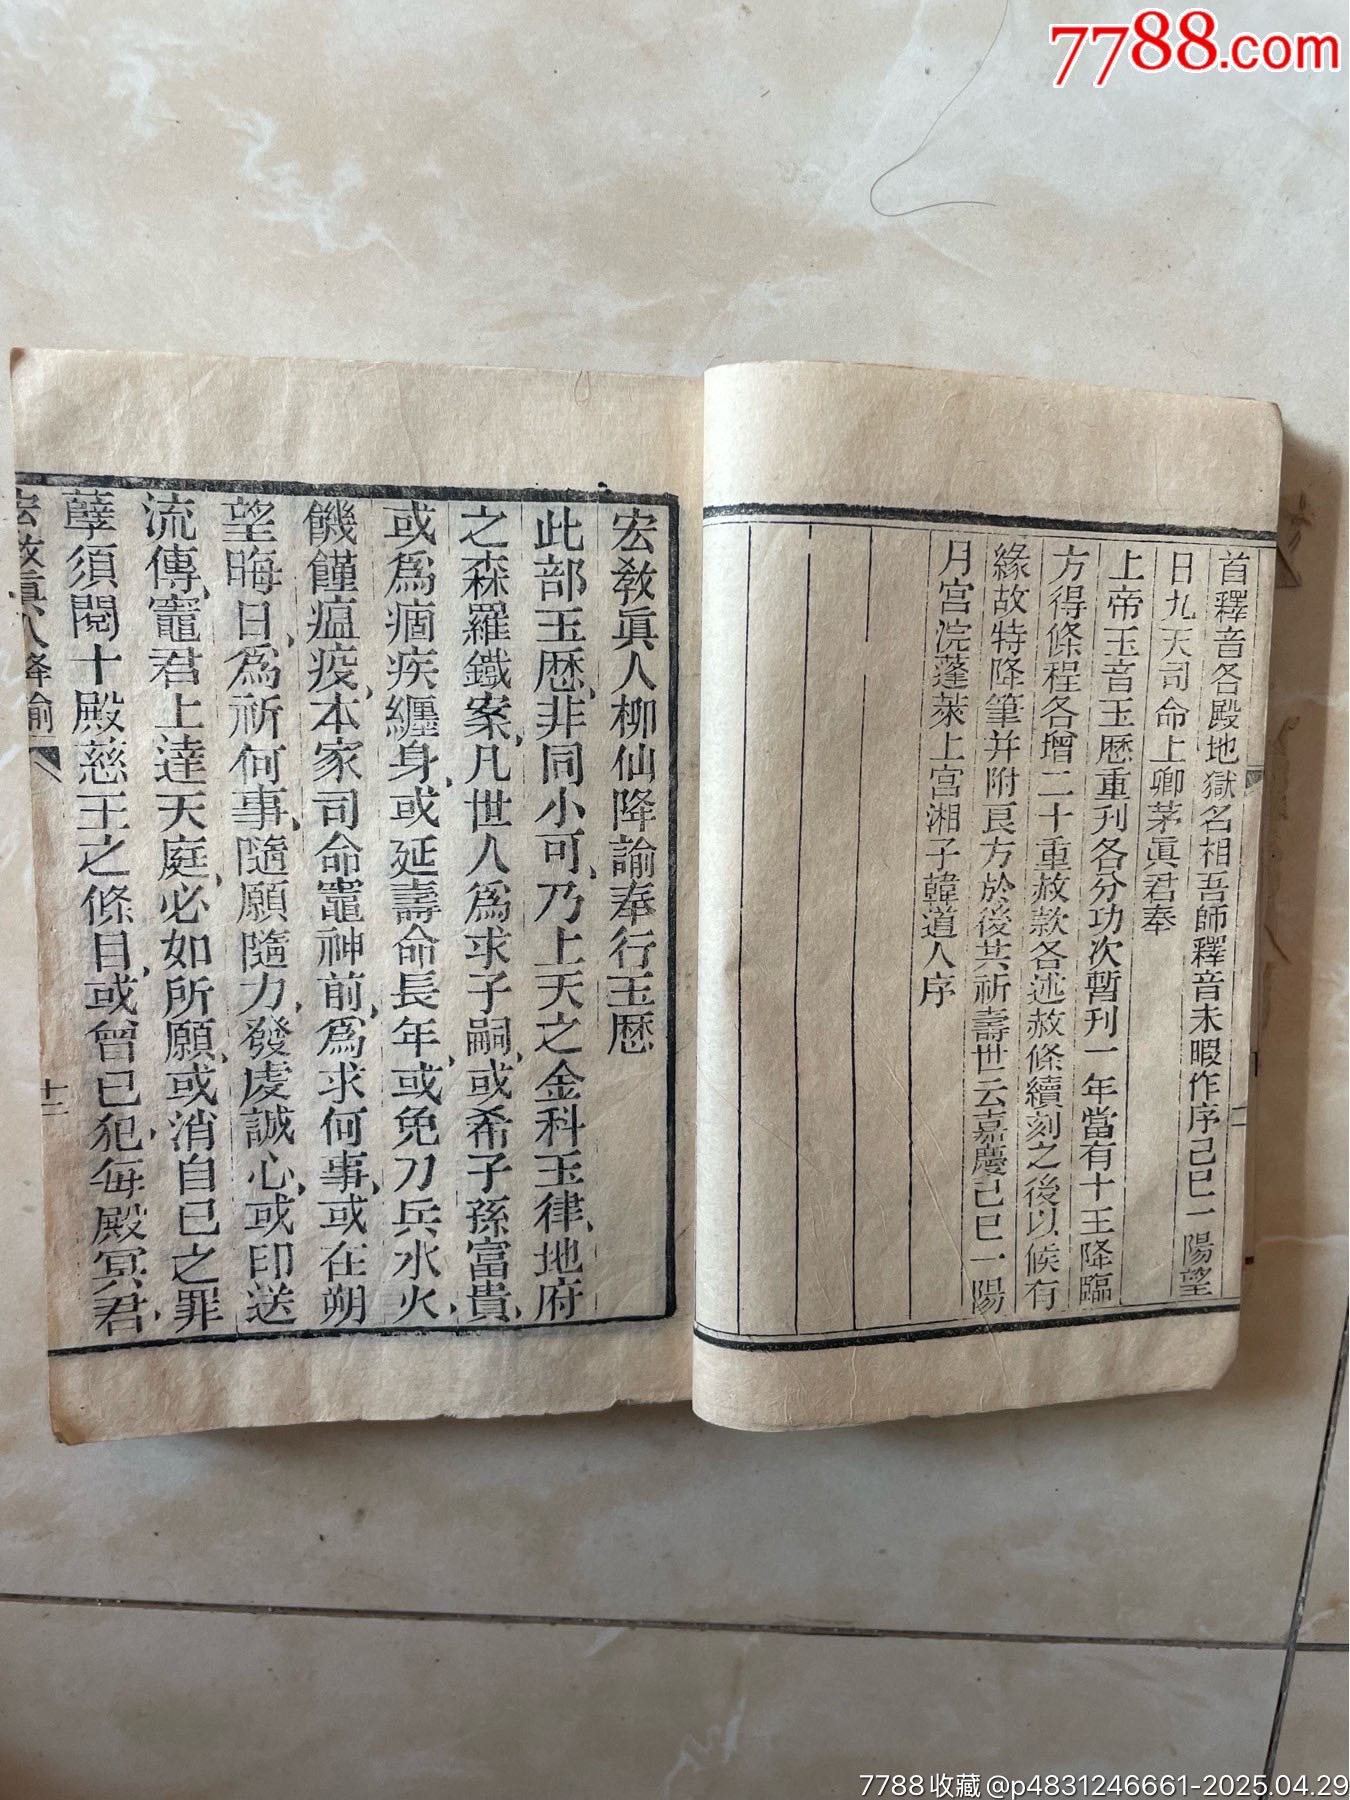 7788.com
首釋音各殿地獄名相吾師釋音未暇作序己巳一陽望
日九天司命上卿茅眞君奉
上帝玉音玉歷重刊各分功次暫刊一年當有十王降臨
方得條程各增二十重赦款各述赦條續刻之後以候有
緣故特降筆并附良方於後共祈壽世云嘉慶己巳一陽
月宮浣蓬萊上宮湘子韓道人序
宏敎眞人柳仙降諭奉行玉歷
此部玉歷、非同小可、乃上天之金科玉律、地府
之森羅鐵案、凡世人爲求子嗣、或希子孫富貴、
或爲痼疾纏身、或延壽命長年、或免刀兵水火、
饑饉瘟疫、本家司命竈神前、爲求何事、或在朔
望晦日、爲祈何事、隨願隨力、發虔誠心、或印送
流傳、竈君上達天庭、必如所願、或消自已之罪
孽須閱十殿慈王之條目、或曾已犯、每殿冥君、
宏敎眞人降諭
十二
7788收藏@p4831246661-2025.04.29